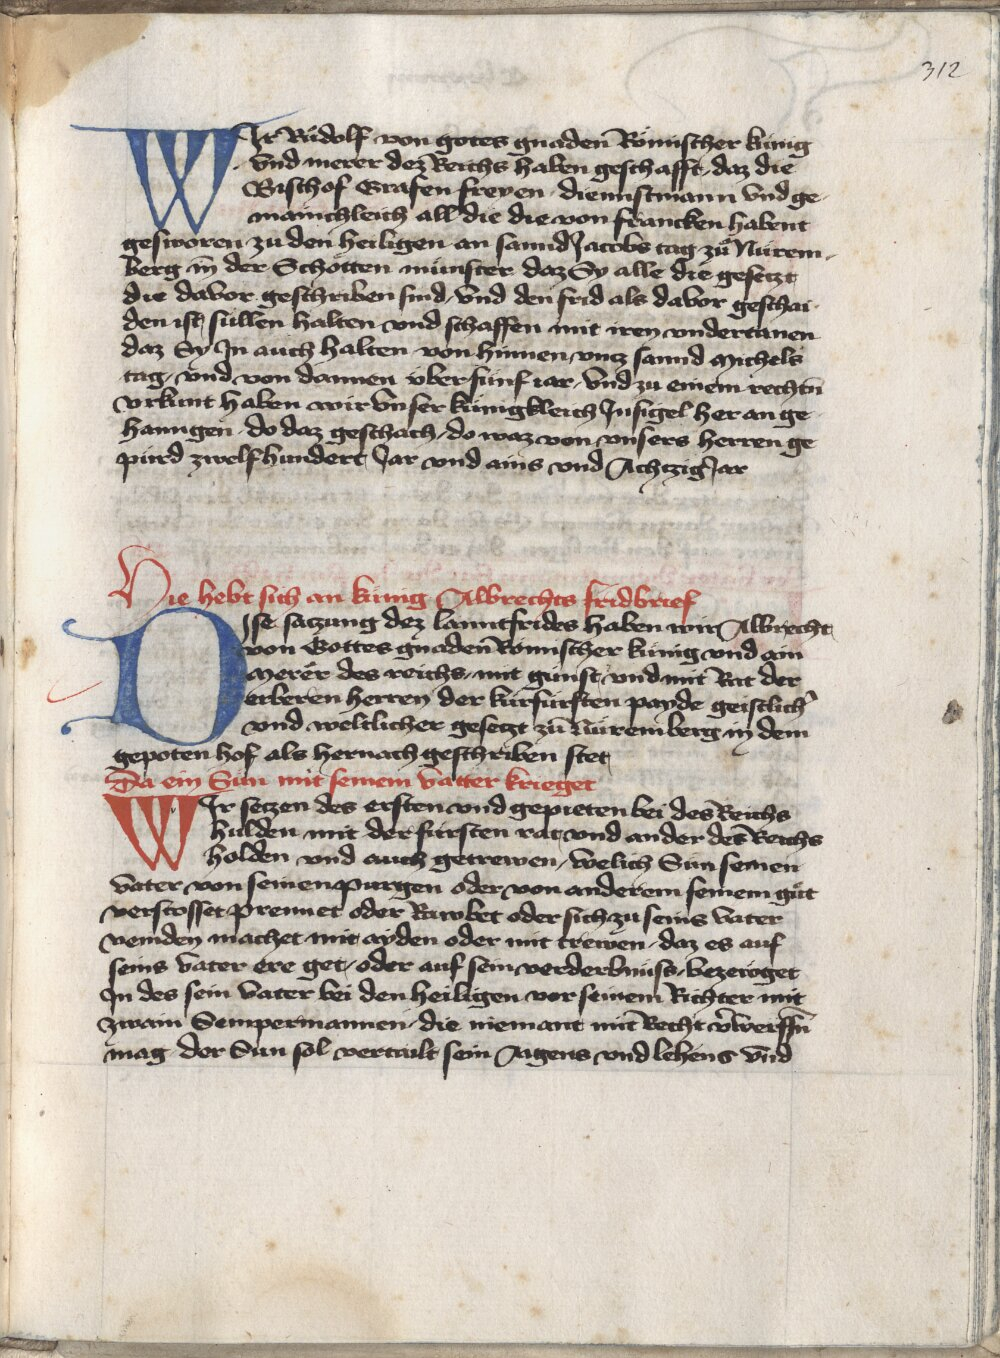 312
WIr Rüdolf von gotes gnaden Römischer künig
vnd merer dez Reichs haben geschafft, daz die
Bischof Grafen freyen diennstmann vnd ge-
mainchleich all die die von francken habent
gesworen zu den heiligen an sannd Jacobs tag zů Nürem-
berg in der Schotten münster daz Sy alle die gesetzt
die davor geschriben sind, vnd den frid als davor geschai-
den ist, süllen halten vnd schaffen mit iren vndertanen
daz Sy In auch halten von hinnen vntz sannd Michels
tag, vnd von dannen über fünf iar, vnd zu einem rechtn̄
vrkunt haben wir vnser künigkleich Insigel her an ge
hanngen, do daz geschach, do waz von vnsers herren ge
pürd zwelfhundert Jar vnd ains vnd Achtzig Jar
Hie hebt sich an künig Albrechts fridbrief
DIse satzung dez lanntfrides haben wir Albrecht
von Gottes gnaden Römischer künig vnd ain
merer des reichs, mit günst vnd mit Rat der
erberen herren der kürfürsten payde geistlich͛
vnd weltlicher gesetzt zů Nüremberg in dem
gepoten hof als hernach geschriben stet
Da ein Sun mit seinem vatter krieget
WIr setzen des ersten vnd gepieten bei des Reichs
hulden mit der fürsten rat, vnd ander des Reichs
holden vnd auch getrewen, welich Sun seinen
vater von seinen purgen oder von anderem seinem gůt
verstosset prennet oder Rawbet oder sich zu seins vater
veinden machet mit ayden oder mit trewen, daz es auf
seins vater ere get, oder auf sein verderbnüss, bezewget
In des sein vater bei den heiligen vor seinem Richter mit
zwain Sempermannen, die niemant mit Recht v͛werffn̄
mag der Sun sol vertailt sein Aygens vnd lehens vnd